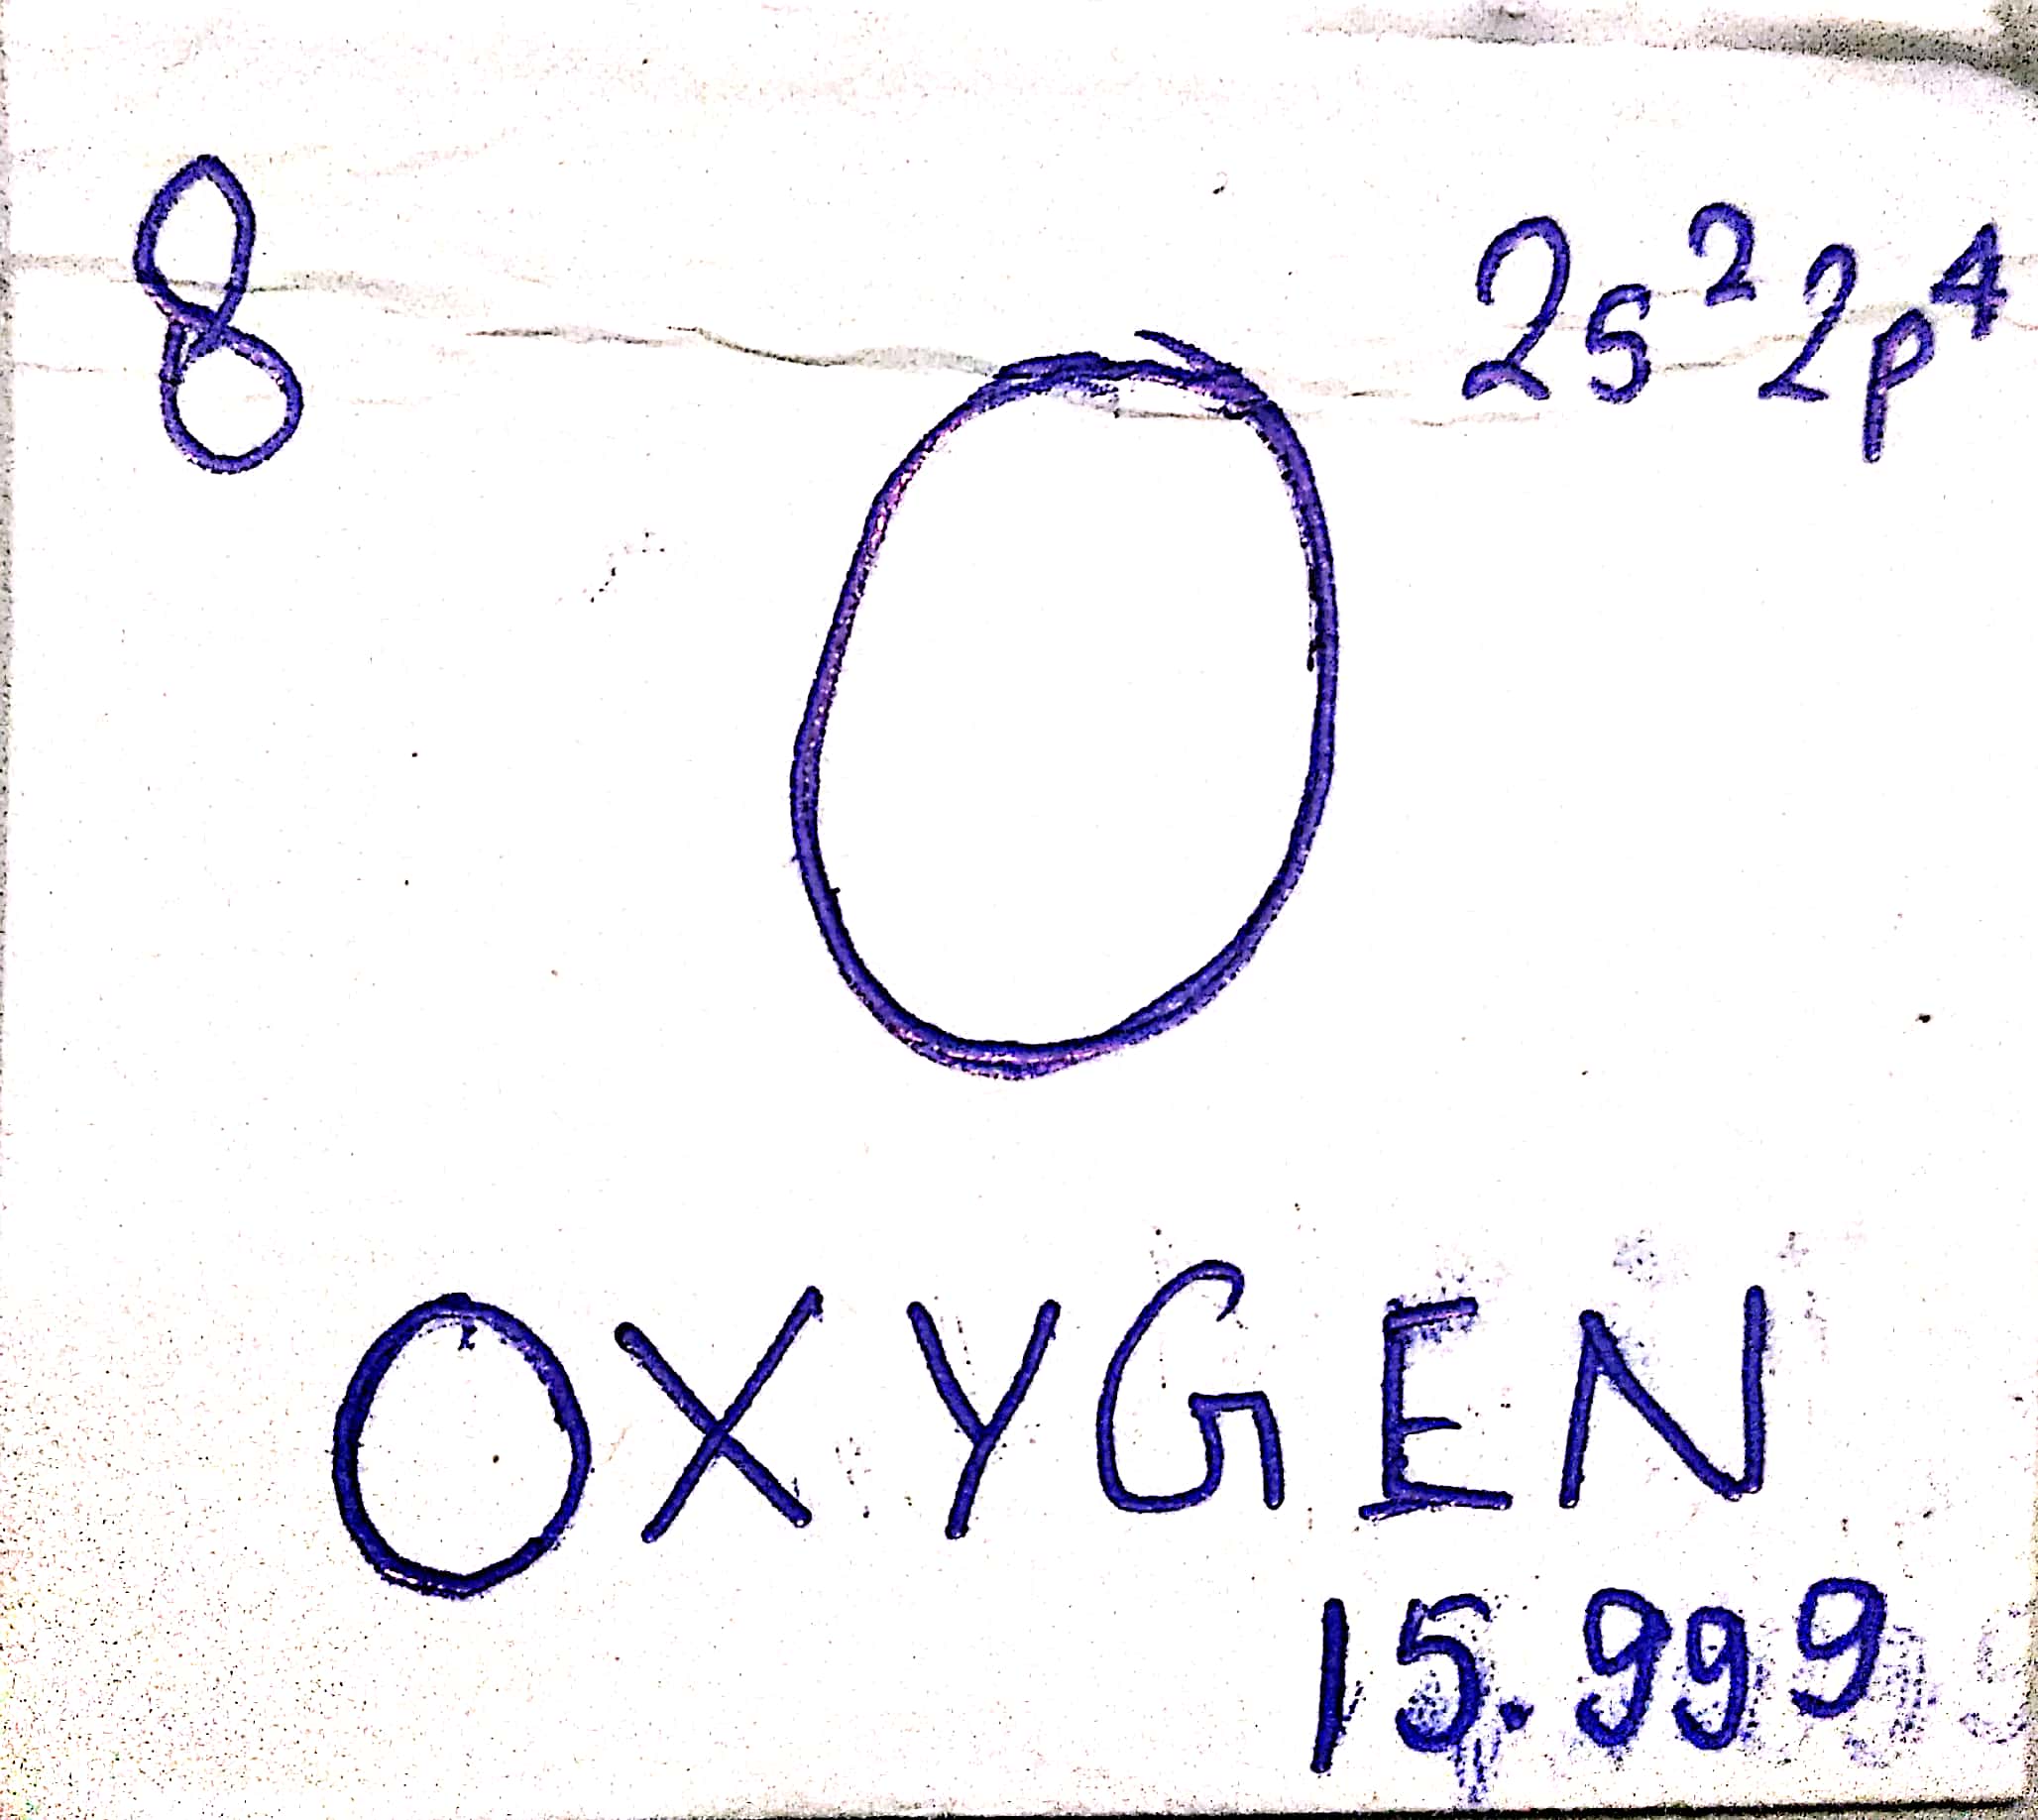 8
2s²2p⁴
O
OXYGEN
15.999